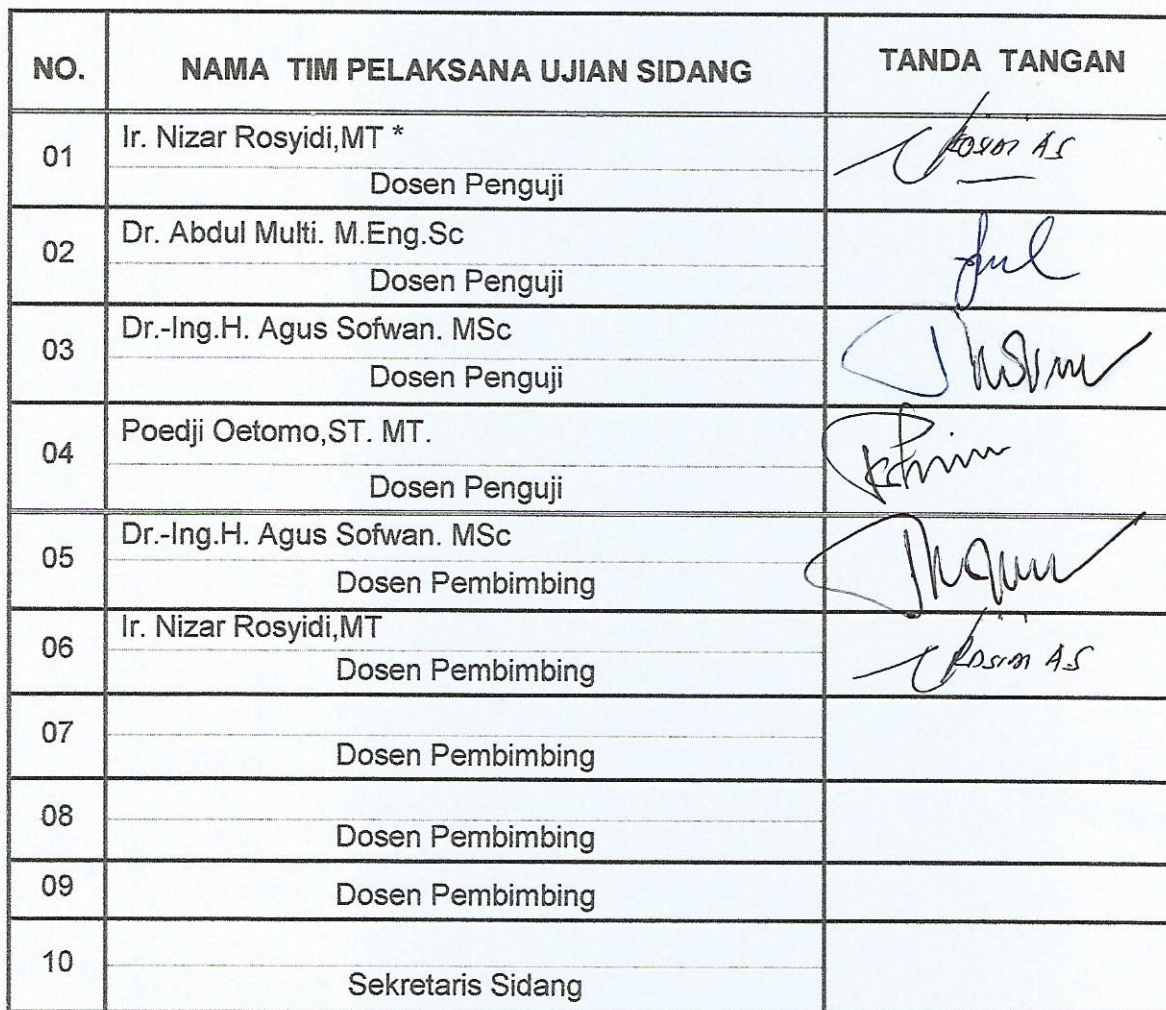 NO. NAMA TIM PELAKSANA UJIAN SIDANG TANDA TANGAN
01 Ir. Nizar Rosyidi,MT *
Dosen Penguji
02 Dr. Abdul Multi. M.Eng.Sc
Dosen Penguji
03 Dr.-Ing.H. Agus Sofwan. MSc
Dosen Penguji
04 Poedji Oetomo,ST. MT.
Dosen Penguji
05 Dr.-Ing.H. Agus Sofwan. MSc
Dosen Pembimbing
06 Ir. Nizar Rosyidi,MT
Dosen Pembimbing
07
Dosen Pembimbing
08
Dosen Pembimbing
09 Dosen Pembimbing
10
Sekretaris Sidang